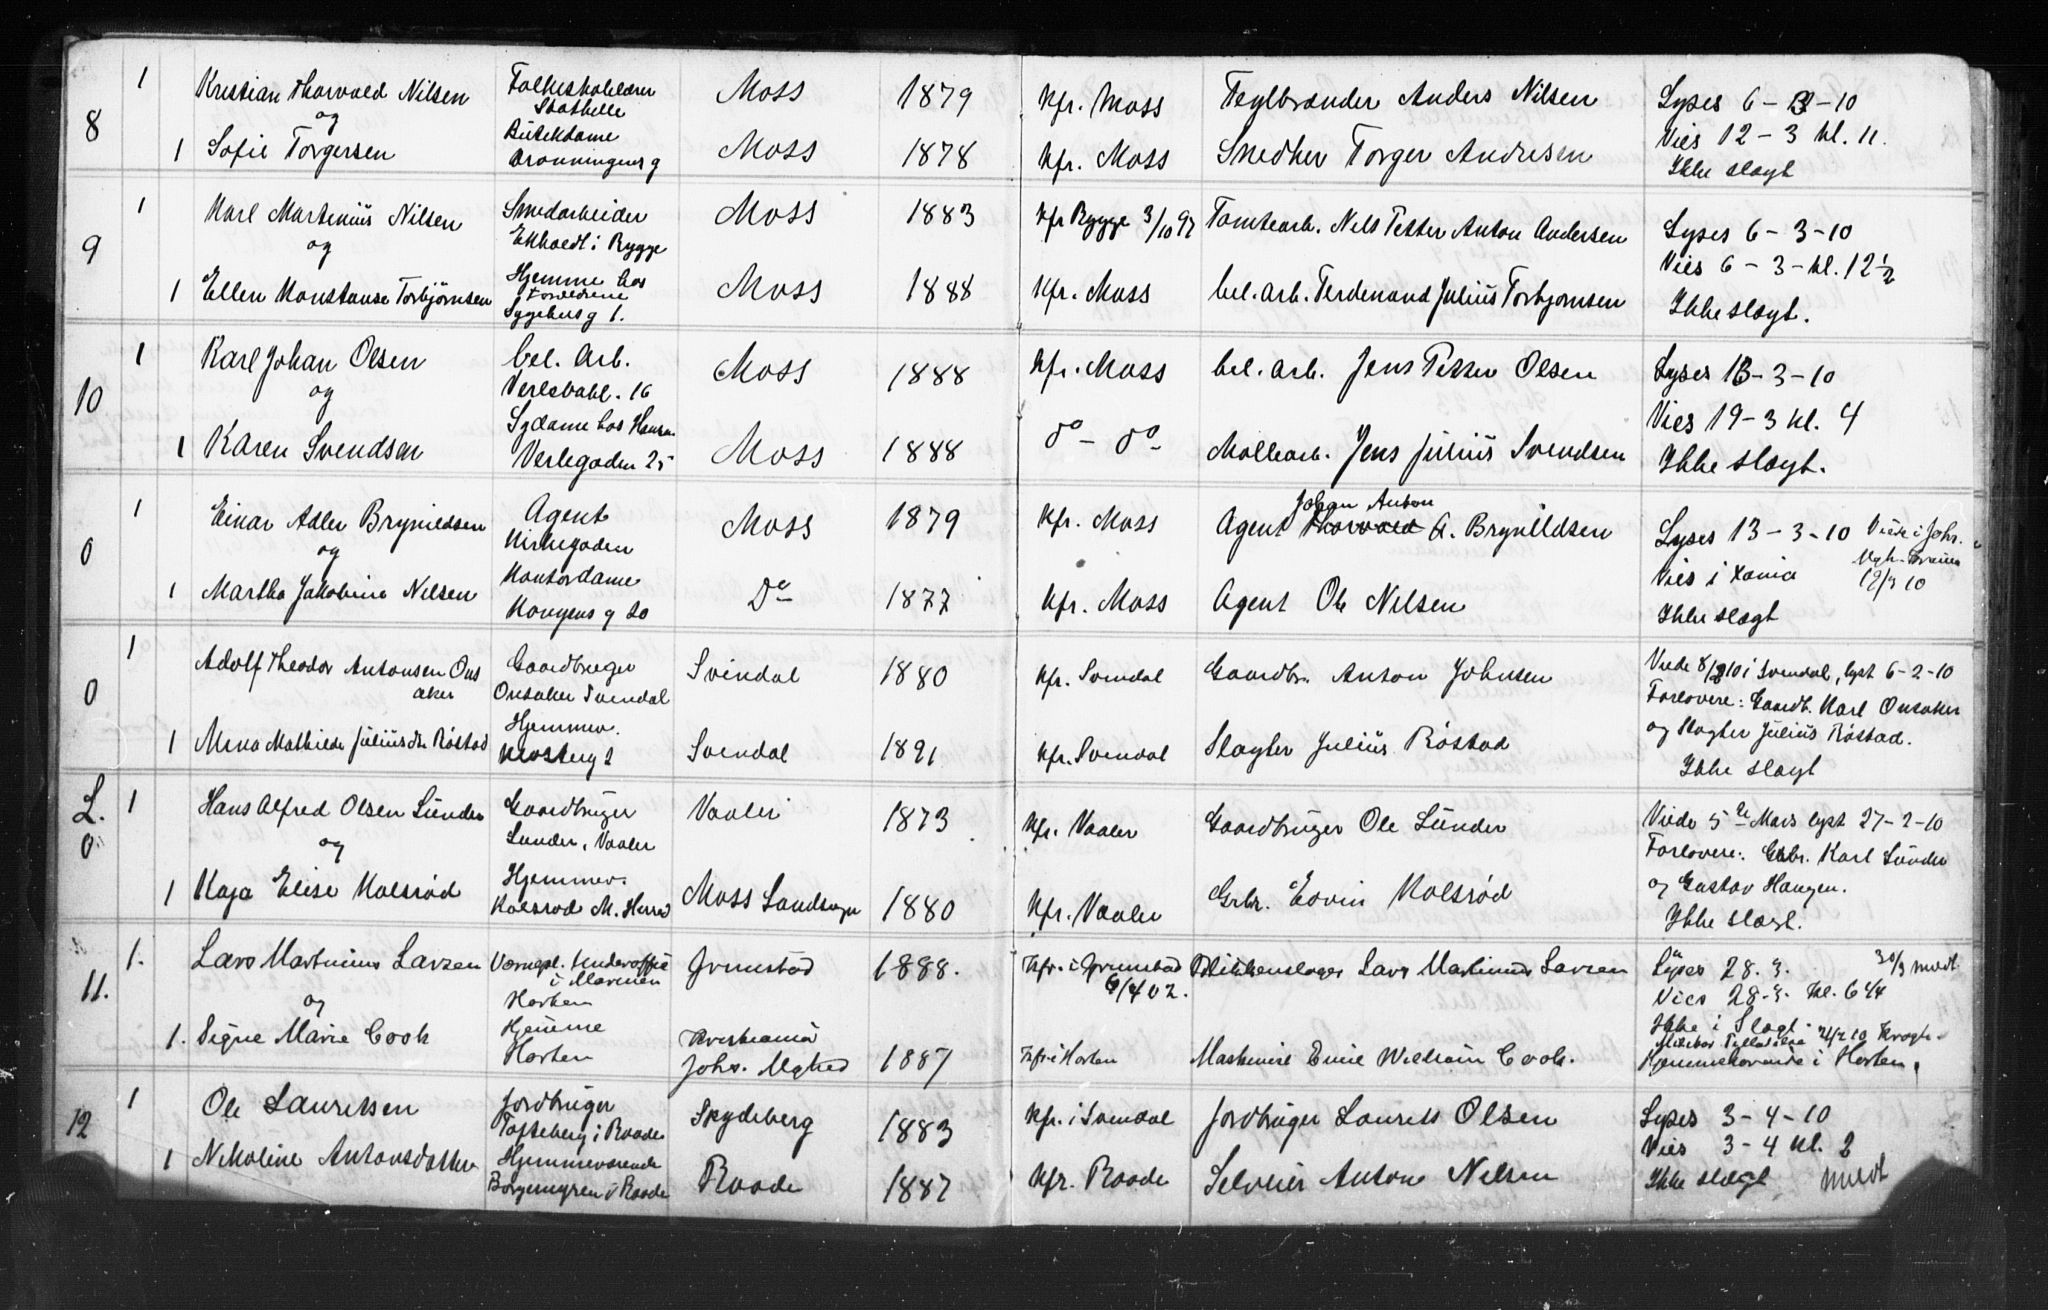 8 1 Kristian Thorvald Nilsen Folkeskolelærer Moss 1879 Kfr. Moss Teglbrænder Anders Nilsen Lyses 6 - 3 - 10
og Stathelle
1 Sofie Torgersen Butikdame Moss 1878 Kfr. Moss Snedker Torger Andresen Vies 12 - 3 kl. 11.
Dronningensg Ikke slægt
9 1 Karl Martinius Nilsen Smedarbeider Moss 1883 Kfr Rygge 3/10 97 Tomtearb. Nels Petter Anton Andersen Lyses 6 - 3 - 10
og Ekholdt i Rygge
1 Ellen Konstanse Torbjørnsen Hjemme hos Moss 1888 Kfr. Moss bel. arb. Ferdenand Julius Torbjørnsen Vies 6 - 3 - kl. 12 1/2
Forældrene
g 1. Ikke slægt.
10 1 Karl Johan Olsen bel. Arb. Moss 1888 Kfr. Moss bel. arb. Jens Petter Olsen Lyses 13 - 3 - 10
og 16
1 Karen Svendsen Sydame hos Moss 1888 do - do Møllearb. Jens Julius Svendsen Vies 19 - 3 kl. 4
Verlegaden 25 Ikke slægt.
0 1 Einar Adler Brynildsen Agent Moss 1879 Kfr. Moss Agent Johan Anton Thorvald A. Brynildsen Lyses 13 - 3 - 10 Viede i Johs.
og Kirkegaden
1 Martha Jakobine Nilsen Kontordame Do 1877 Kfr. Moss Agent Ole Nilsen Vies i Xania 19/3 10
Kongens g 20 Ikke slægt
0 1 Adolf Theodor Antonsen Ons Gaardbruger Svindal 1880 Kfr. Svendal Gaardbr. Anton Johnsen Viede 8/3 10 i Svendal, lyst 6-2-10
aker Onsaker Svendal Forlovere: Gaardb. Karl Onsaker
1 Mina Mathilde Juliusdtr Røstad Hjemmev. Svendal 1891 Kfr. Svendal Slagter Julius Røstad og Slagter Julius Røstad.
Klosterg 2 Ikke slægt
L. 0 1 Hans Alfred Olsen Sunder Gaardbruger Vaaler 1873 Kfr. Vaaler Gaardbruger Ole Sunder Viede 5te Mars lyst 27-2-10
og Sunder, Vaaler Forlovere: Gbr. Karl Sunder
1 Kaja Elise Kolsrød Hjemmev. Moss Landsogn 1880 Kfr. Vaaler Grbr. Edvin Kolsrød og Gustav Haugen.
Kolsrød M. Herred Ikke slægt.
11. 1. Lars Martinius Larsen Værnepl. Underoffic Grimstad 1888. Kfr. i Grimstad Blikkenslager Lars Martinius Larsen Lyses 28. 3. 30/3 meldt
og i Marinen 6/4 02. Vies 28. 3. Kl. 6 1/4
Horten Ikke i Slægt.
1. Signe Marie Cook Hjemme Kristiania 1887 Kfr. i Horten Maskinist Emil William Cook.
Horten Johs. Mghed Hjemmehørende i Horten.
12 1 Ole Lauritsen Jordbruger Skydsberg 1883 Kfr. i Svendal Jordbruger Laurits Olsen Lyses 3 - 4 - 10
Tofteberg i Raade Vies 3 - 4 kl. 2
1 Nikoline Antonsdatter Hjemmeværende Raade 1887 Kfr. Raade Selveier Anton Nilsen Ikke slægt meldt
Borgemyren i Raade